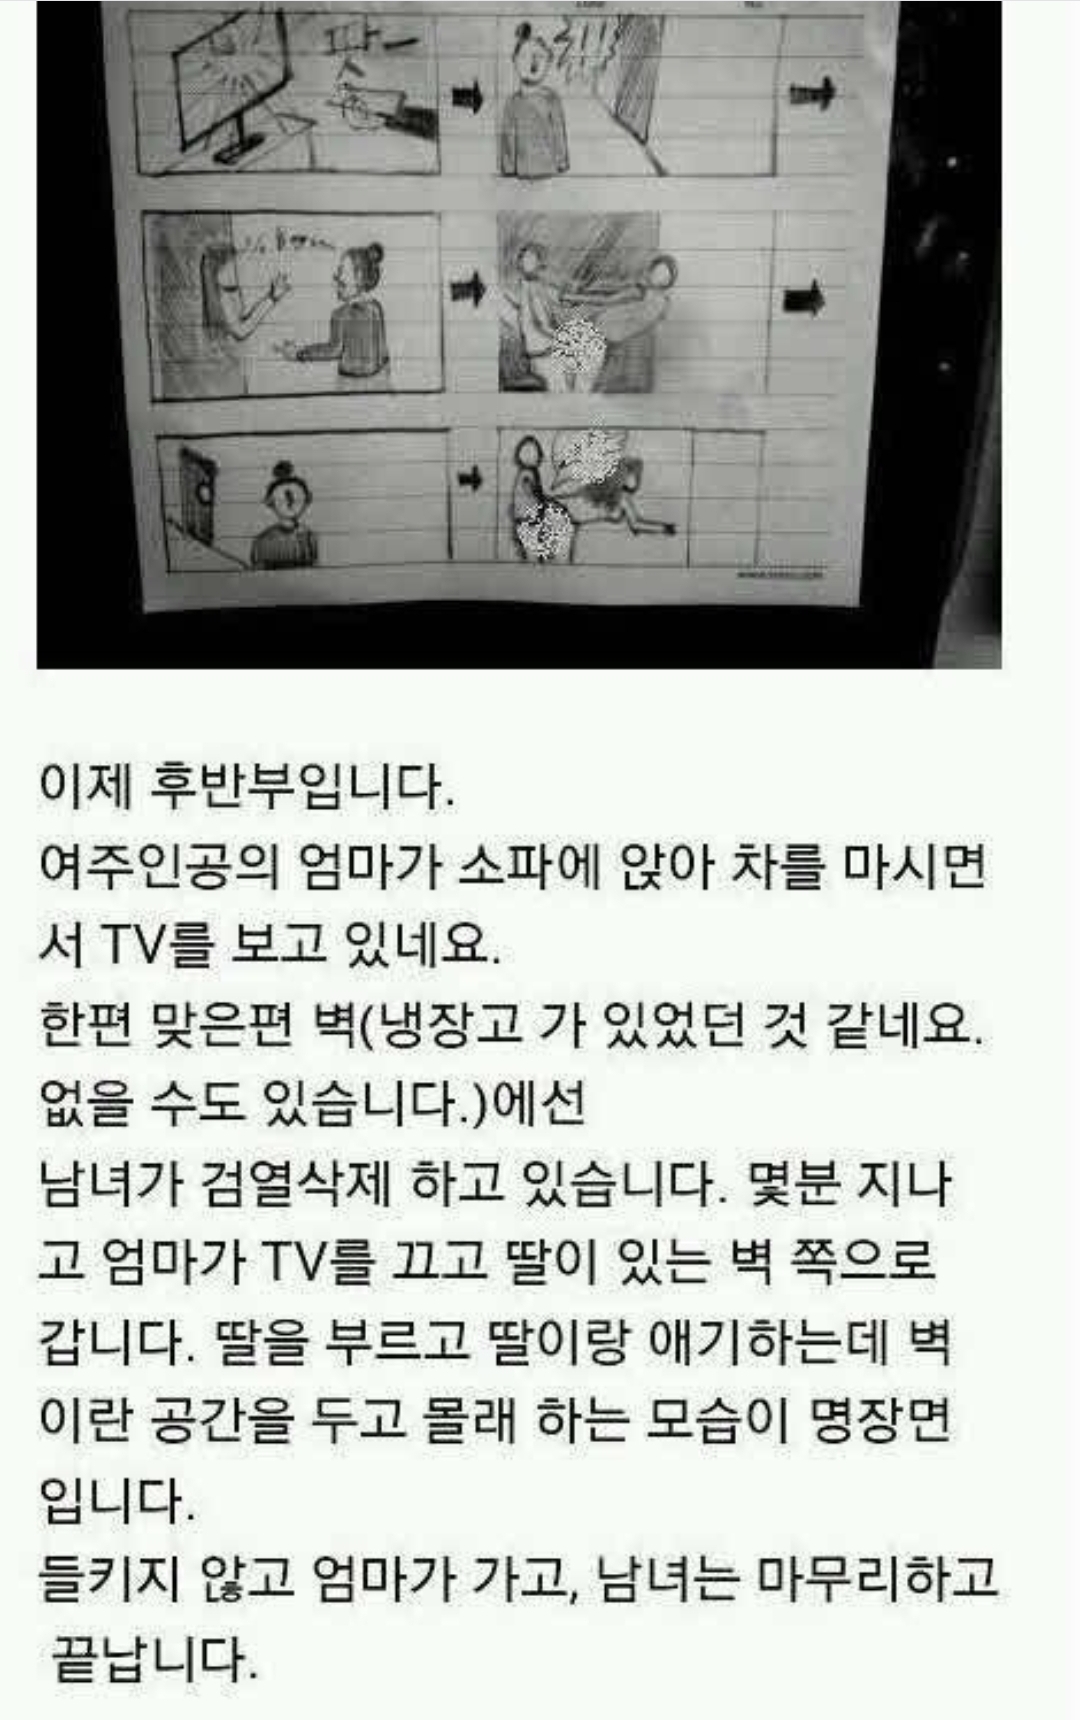 이제 후반부입니다.
여주인공의 엄마가 소파에 앉아 차를 마시면
서 TV를 보고 있네요.
한편 맞은편 벽(냉장고 가 있었던 것 같네요.
없을 수도 있습니다.)에선
남녀가 검열삭제 하고 있습니다. 몇분 지나
고 엄마가 TV를 끄고 딸이 있는 벽 쪽으로
갑니다. 딸을 부르고 딸이랑 얘기하는데 벽
이란 공간을 두고 몰래 하는 모습이 명장면
입니다.
들키지 않고 엄마가 가고, 남녀는 마무리하고
끝납니다.